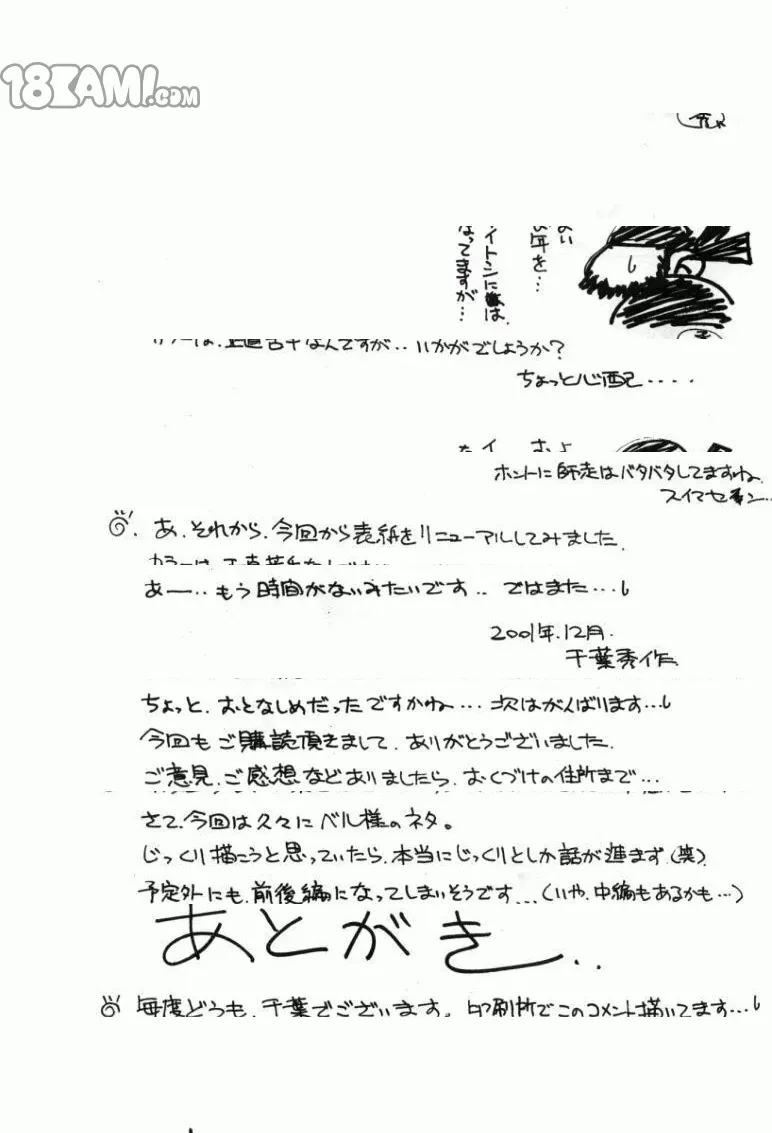 18KAMI.COM
年を…
イトシに
ってますが…
なんですが..いかがでしょうか?
ちょっと心配....
ホントに師走はバタバタしてますね.
スイマセン...
あ、それから、今回から表紙をリニューアルしてみました.
あー...もう時間がないみたいです.. ではまた...
2001年.12月.
千葉秀作.
ちょっと、おとなしめだったですかね...次はがんばります...
今回もご購読頂きまして、ありがとうございました.
ご意見、ご感想などありましたら、おくづけの住所まで...
さて、今回は久々にベル様のネタ。
じっくり描こうと思っていたら、本当にじっくりとしか話が進まず(笑)
予定外にも、前後編になってしまいそうです...(いや、中編もあるかも...)
あとがき..
毎度どうも、千葉でございます。印刷所でこのコメント描いてます...